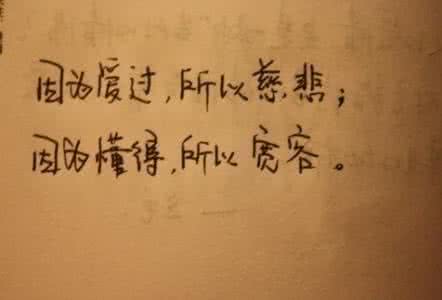 因为爱过,所以慈悲;
因为懂得,所以宽容。